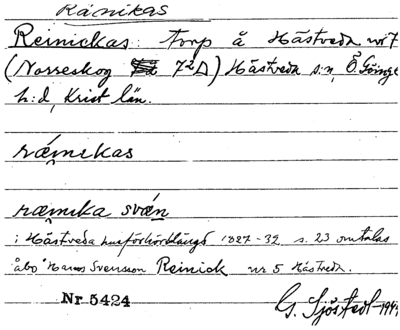 Ränikas
Reinickas: torp å Hästveda nr 7
(Norreskog 72Δ) Hästveda s:n, Ö. Göinge
h:d, Krist. län.
ræ̀mekas
ræmika sván
i Hästveda husförhörslängd 1827-32 s. 23 omtalas
åbo Hans Svensson Reinick nr 5 Hästveda.
Nr 5424
G. Sjöstedt